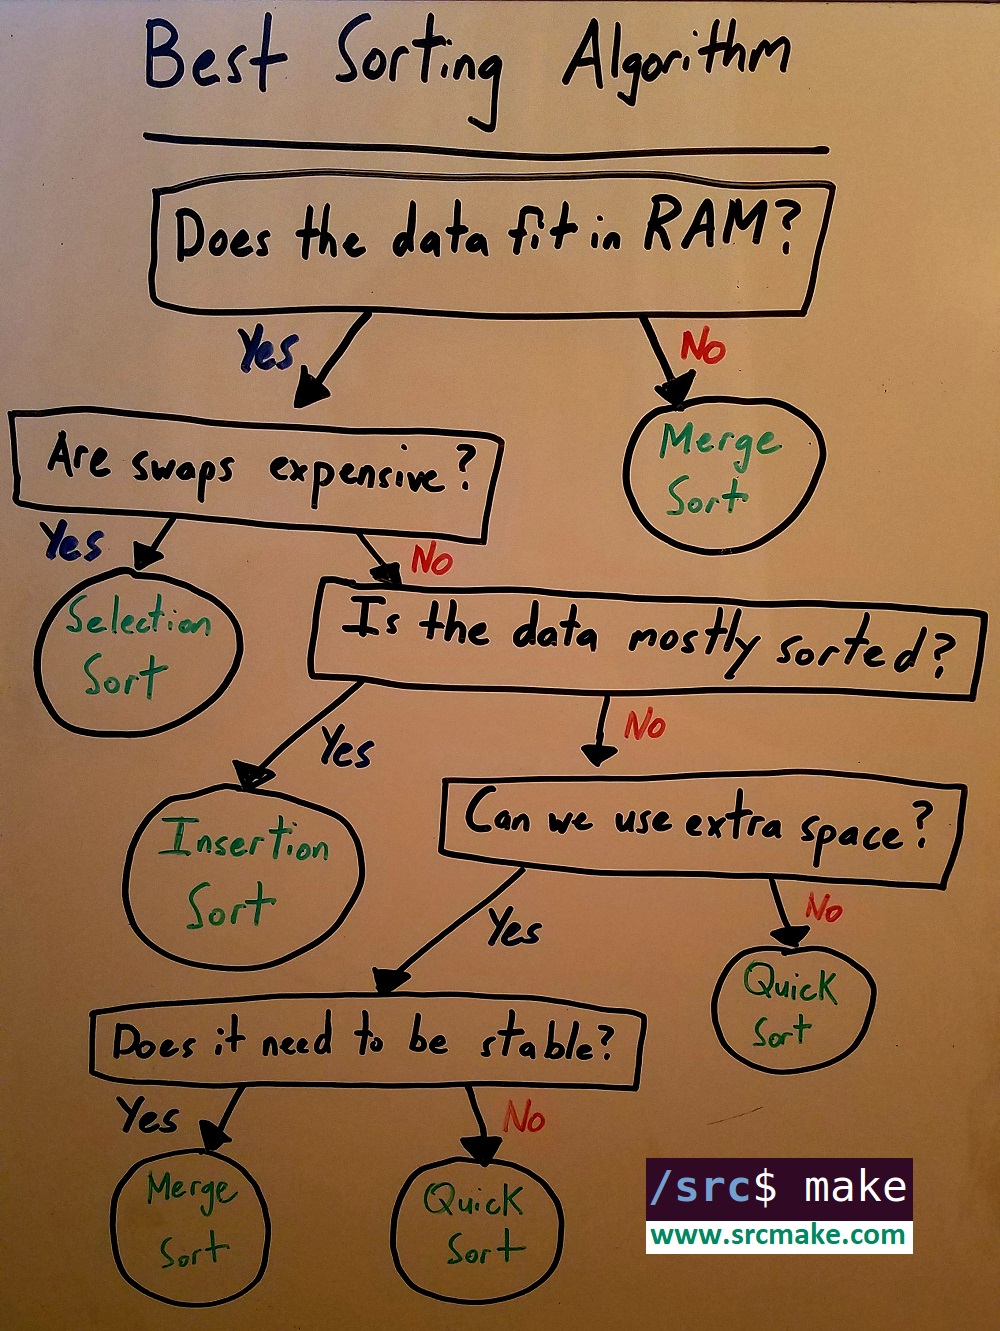 Best Sorting Algorithm
Does the data fit in RAM?
Yes
No
Merge
Sort
Are swaps expensive?
Yes
No
Selection
Sort
Is the data mostly sorted?
Yes
No
Insertion
Sort
Can we use extra space?
Yes
No
Quick
Sort
Does it need to be stable?
Yes
No
Merge
Sort
Quick
Sort
/src$ make
www.srcmake.com